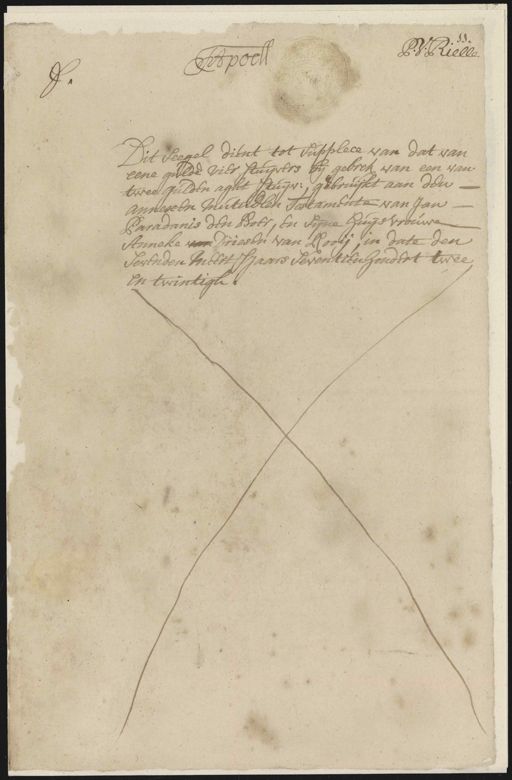 11.
P:V:Rielle
Dit Seegel dient tot Supplece van dat van
eene gulde vier stuyvers bij gebrek van een van
twee gulden agt stuyv:, gebruijkt aan den
annexen mutuelen Testamente van Jan
Paradanis den Boer, en Syne huysvrouwe
Anneke Driesen van Rooij, in date den
Sevenden Meert Jaars Seventien hondert twee
en twintigh.